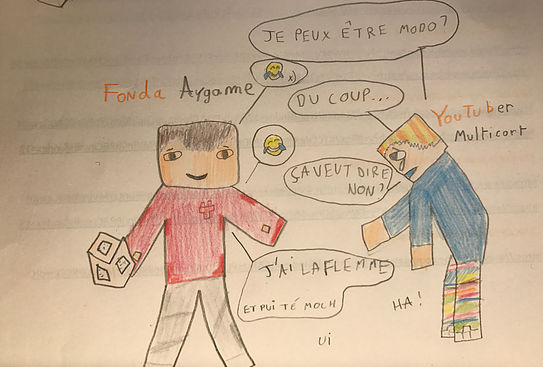 JE PEUX ÊTRE MODO?
x)
Fonda Aygame
DU COUP...
YouTuber
Multicort
ÇA VEUT DIRE
NON?
J'AI LA FLEMME
ET PUI TÉ MOCH
HA!
UI